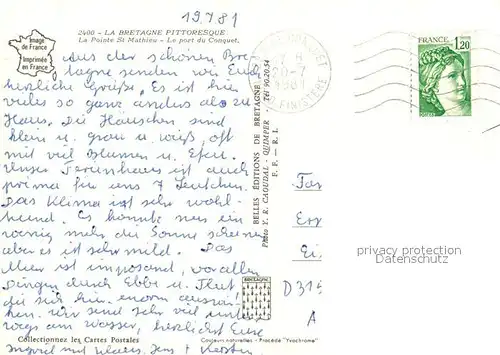 19.7.81
2400 - LA BRETAGNE PITTORESQUE
La Pointe St Mathieu - Le port du Conquet.
Image de France
Imprimée en France
Aus der schönen Bre-
tagne senden wir Euch
herzliche Grüße. Es ist hier
vieles so ganz anders als zu
Haus. Die Häuschen sind
klein u. grau u weiß, oft
mit viel Blumen u. Efeu.
Unser Ferienhaus ist auch
prima für uns 7 Deutschen.
Das Klima ist sehr wohl-
tuend. Es könnte nur ein
wenig mehr die Sonne scheinen
aber es ist sehr mild. Das
Meer ist imposant, vor allen
Dingen durch Ebbe u. Flut
die sich hier enorm auswir-
ken. Wir sind sehr viel unter
wegs am Wasser, herzlichst Eure
Ingrid mit Klaus, Jens + Kersten
BELLES ÉDITIONS DE BRETAGNE
Photo Y. R. CAOUDAL - QUIMPER - Tél 90.20.54
F. F. - R. I.
LE CONQUET
20-7
1981
FINISTERE
FRANCE
1,20
POSTES
Fa
Er
Ei
D 315
A
BRETAGNE
privacy protection
Datenschutz.
Collectionnez les Cartes Postales
Couleurs naturelles - Procédé "Yvochrome"